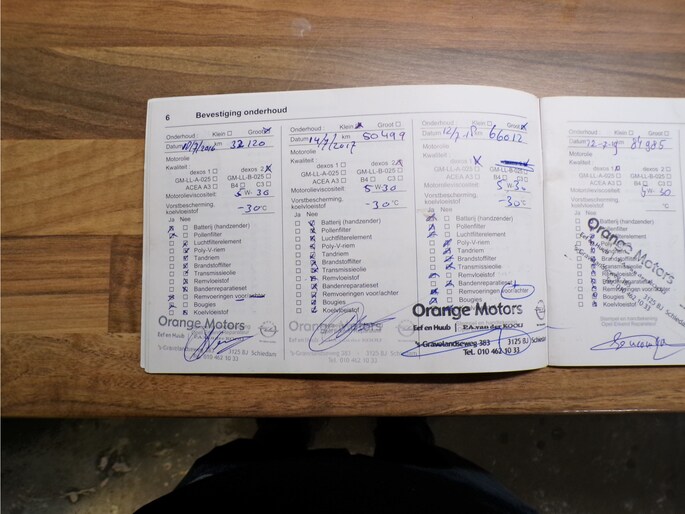 6 Bevestiging onderhoud
Onderhoud : Klein Groot
Datum 18/7/2016 km 32120
Motorolie
Kwaliteit :
dexos 1 dexos 2
GM-LL-A-025 GM-LL-B-025
ACEA A3 B4 C3
Motorolieviscositeit 5 W- 30
Vorstbescherming,
koelvloeistof -30°C
Ja Nee
Batterij (handzender)
Pollenfilter
Luchtfilterelement
Poly-V-riem
Tandriem
Brandstoffilter
Transmissieolie
Remvloeistof
Bandenreparatieset
Remvoeringen voor/
Bougies
Koelvloeistof
Orange Motors
Eef en Huub
's-Gravelandseweg 383 3125 BJ Schiedam
Tel. 010 462 10 33
Onderhoud : Klein Groot
Datum 14/7/2017 km 50499
Motorolie
Kwaliteit :
dexos 1 dexos 2
GM-LL-A-025 GM-LL-B-025
ACEA A3 B4 C3
Motorolieviscositeit 5 W 30
Vorstbescherming,
koelvloeistof -30°C
Ja Nee
Batterij (handzender)
Pollenfilter
Luchtfilterelement
Poly-V-riem
Tandriem
Brandstoffilter
Transmissieolie
Remvloeistof
Bandenreparatieset
Remvoeringen voor/achter
Bougies
Koelvloeistof
Orange Motors
Eef en Huub
's-Gravelandseweg 383 3125 BJ Schiedam
Tel. 010 462 10 33
Onderhoud : Klein Groot
Datum 12/7/18 km 66012
Motorolie
Kwaliteit :
dexos 1
GM-LL-A-025 GM-LL-B-025
ACEA A3 B4 C3
Motorolieviscositeit 5 W- 30
Vorstbescherming,
koelvloeistof -30°C
Ja Nee
Batterij (handzender)
Pollenfilter
Luchtfilterelement
Poly-V-riem
Tandriem
Brandstoffilter
Transmissieolie
Remvloeistof
Bandenreparatieset
Remvoeringen voor/achter
Bougies
Orange Motors
Eef en Huub P.A. van der KOOIJ
's-Gravelandseweg 383 3125 BJ Schie
Tel. 010 462 10 33
Onderhoud : Klein Groot
Datum km 84985
Motorolie
Kwaliteit :
dexos 1 dexos 2
GM-LL-A-025 GM-LL-B-025
ACEA A3 B4 C3
Motorolieviscositeit 5 W 30
Vorstbescherming,
koelvloeistof °C
Ja Nee
Orange Motors
3125 BJ Schiedam
Remvoeringen voor/achter
Bougies
Koelvloeistof